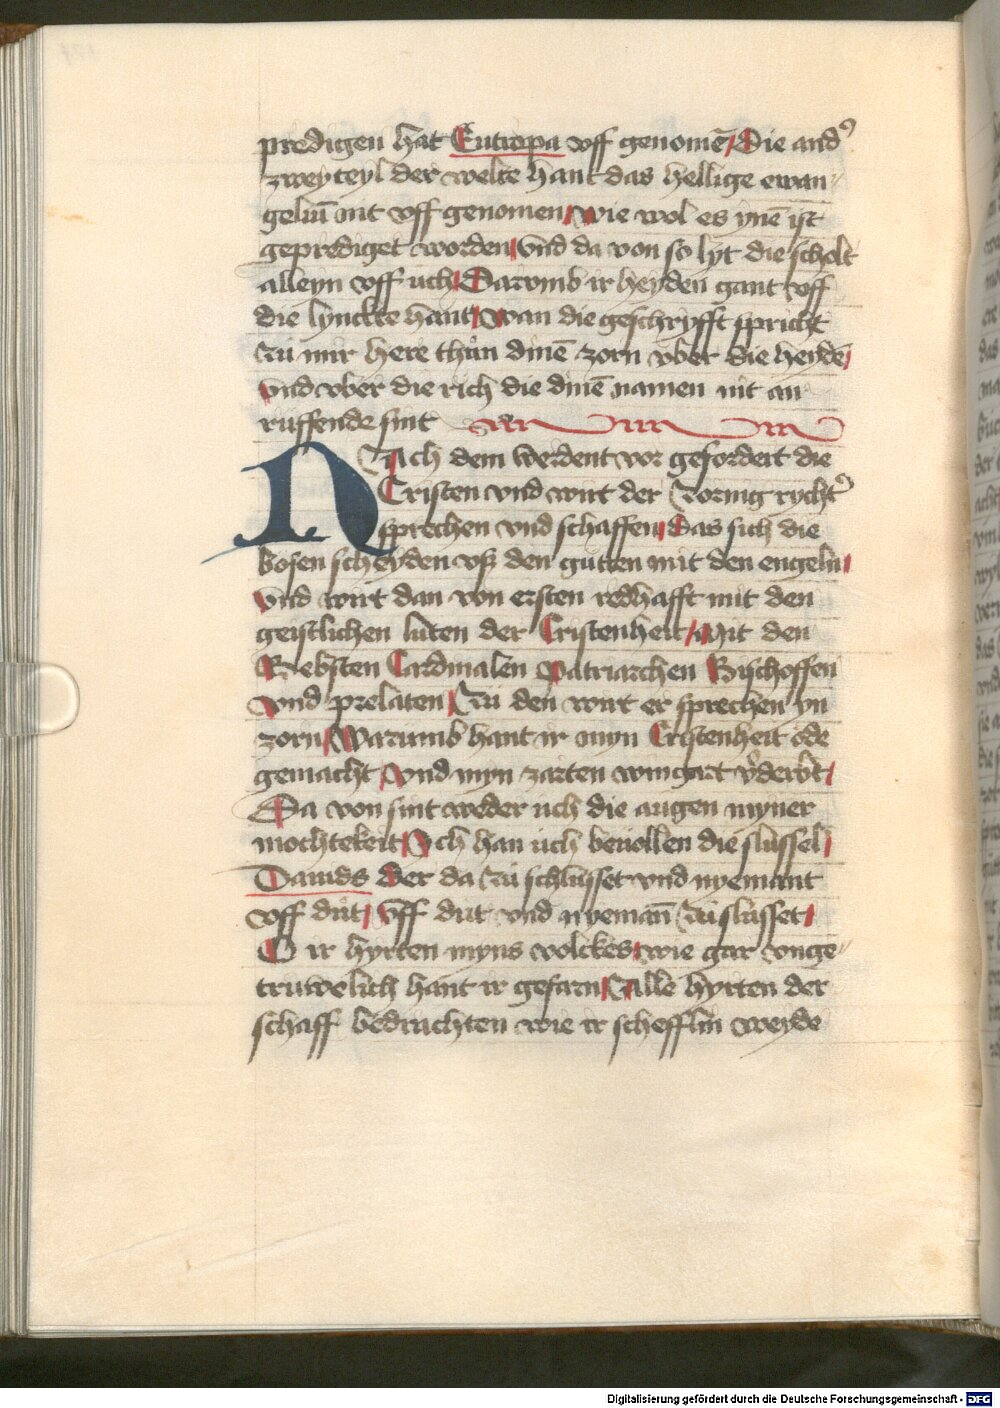 predigen hat Eutropa vff genomē / Die andˀ
zwey teyl der welte hant das heilige ewan-
geliū nit vff genomen / wie wol es ynē ist
geprediget worden / Vnd da von so lyt die scholt
alleyn vff uch / Darvmb ir heyden gant vff
die lynckte hant / wan die geschryfft spricht
Zu mir here thůn dinē zorn vber die heydē /
vnd vber die rich die dinē namen nit an
ruffende sint
NAch dem werdent vor gefordert die
Cristen vnd wirt der Zornig rychtˀ
sprechen vnd schaffen / Das sich die
bosen scheyden vß den gutten mit den engeln /
Vnd wirt dan von ersten redhafft mit den
geistlichen luten der Cristenheit / Mit den
Bebsten Cardinalen Patriarchen Bischoffen
vnd prelaten / Zu den wirt er sprechen yn
zorn / Warumb hant ir myn Cristenheit ode
gemacht / Vnd myn zarten wingart v̾derbt /
Da von sint weder uch die augen myner
mochtekeit / Ich han uch beuollen die slussel /
Dauids Der da zu schlusset vnd nyemant
vff důt / Vff dut vnd nyemañ zu slusset /
O ir hyrten myns volckes / wie gar vnge-
truwelich hant ir gefarn / Alle hyrten der
schaff bedrachten wie ir schefflin weyde
Digitalisierung gefördert durch die Deutsche Forschungsgemeinschaft - DFG